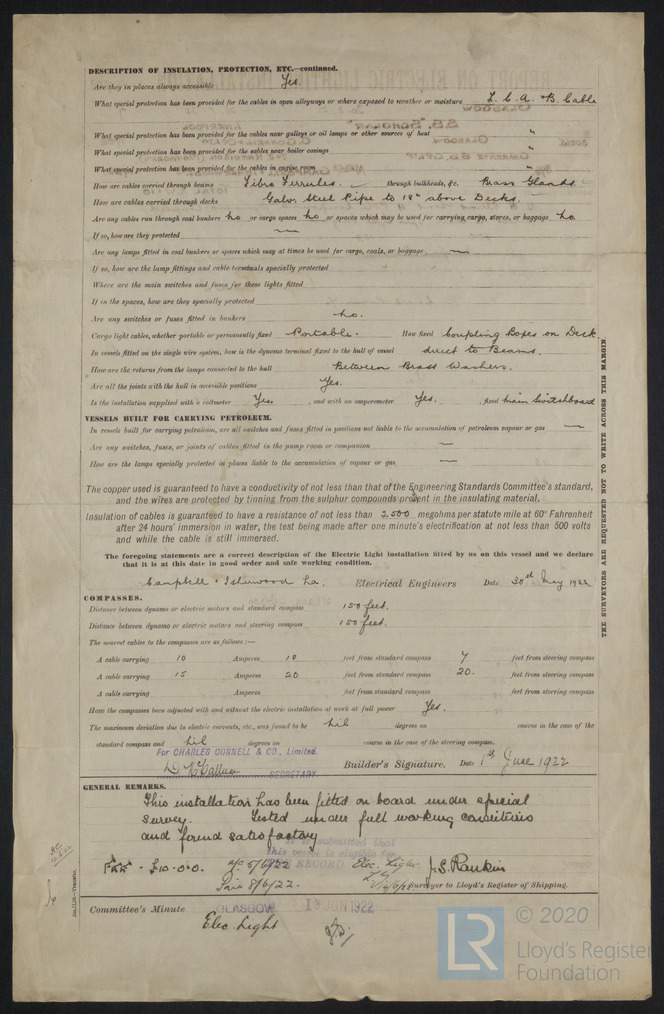 DESCRIPTION OF INSULATION, PROTECTION, ETC.—continued.
Are they in places always accessible Yes.
What special protection has been provided for the cables in open alleyways or where exposed to weather or moisture L. C. A. & B. Cable
What special protection has been provided for the cables near galleys or oil lamps or other sources of heat "
What special protection has been provided for the cables near boiler casings "
What special protection has been provided for the cables in engine room "
How are cables carried through beams Fibre Ferrules. through bulkheads, &c. Brass Glands.
How are cables carried through decks Galv. Steel Pipe to 18" above Decks.
Are any cables run through coal bunkers No or cargo spaces No or spaces which may be used for carrying cargo, stores, or baggage No.
If so, how are they protected —
Are any lamps fitted in coal bunkers or spaces which may at times be used for cargo, coals, or baggage —
If so, how are the lamp fittings and cable terminals specially protected
Where are the main switches and fuses for these lights fitted
If in the spaces, how are they specially protected
Are any switches or fuses fitted in bunkers No.
Cargo light cables, whether portable or permanently fixed Portable. How fixed Coupling Boxes on Deck
In vessels fitted on the single wire system, how is the dynamo terminal fixed to the hull of vessel direct to Beams.
How are the returns from the lamps connected to the hull Between Brass Washers.
Are all the joints with the hull in accessible positions Yes.
Is the installation supplied with a voltmeter Yes. , and with an amperemeter Yes. , fixed Main Switchboard
VESSELS BUILT FOR CARRYING PETROLEUM.
In vessels built for carrying petroleum, are all switches and fuses fitted in positions not liable to the accumulation of petroleum vapour or gas —
Are any switches, fuses, or joints of cables fitted in the pump room or companion —
How are the lamps specially protected in places liable to the accumulation of vapour or gas —
The copper used is guaranteed to have a conductivity of not less than that of the Engineering Standards Committee's standard,
and the wires are protected by tinning from the sulphur compounds present in the insulating material.
Insulation of cables is guaranteed to have a resistance of not less than 2500 megohms per statute mile at 60° Fahrenheit
after 24 hours' immersion in water, the test being made after one minute's electrification at not less than 500 volts
and while the cable is still immersed.
The foregoing statements are a correct description of the Electric Light installation fitted by us on this vessel and we declare
that it is at this date in good order and safe working condition.
Campbell & Isherwood Ld. Electrical Engineers Date 30th May 1922
COMPASSES.
Distance between dynamo or electric motors and standard compass 150 feet.
Distance between dynamo or electric motors and steering compass 150 feet.
The nearest cables to the compasses are as follows:—
A cable carrying 10 Amperes 10 feet from standard compass 7 feet from steering compass
A cable carrying 15 Amperes 20 feet from standard compass 20. feet from steering compass
A cable carrying Amperes feet from standard compass feet from steering compass
Have the compasses been adjusted with and without the electric installation at work at full power Yes.
The maximum deviation due to electric currents, etc., was found to be Nil degrees on course in the case of the
standard compass and Nil degrees on course in the case of the steering compass.
For CHARLES CONNELL & CO., Limited.
D McCallum SECRETARY. Builder's Signature. Date 1st June 1922
GENERAL REMARKS.
This installation has been fitted on board under special
survey. Tested under full working conditions
and found satisfactory
It is submitted that
this vessel is eligible for
RECORD Elec. Light.
Fee - £10-0-0. 5/6/22
8/6/22.
J.S. Rankin
Surveyor to Lloyd's Register of Shipping.
Committee's Minute GLASGOW 13 JUN 1922
Elec Light
THE SURVEYORS ARE REQUESTED NOT TO WRITE ACROSS THIS MARGIN
© 2020
LR
Lloyd's Register
Foundation